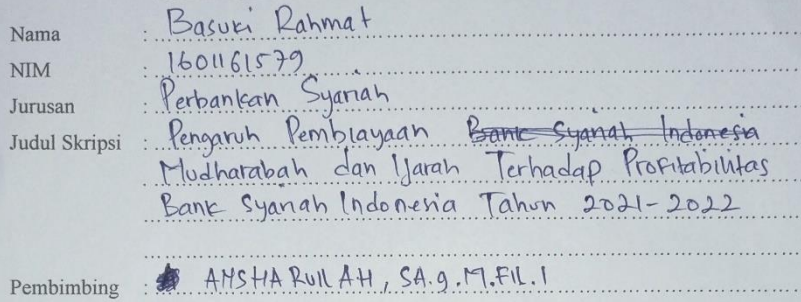 Nama : Basuki Rahmat
NIM : 1601161579
Jurusan : Perbankan Syariah
Judul Skripsi : Pengaruh Pembiayaan Bank Syariah Indonesia
Mudharabah dan Ijarah Terhadap Profitabilitas
Bank Syariah Indonesia Tahun 2021-2022
Pembimbing : ANSHARULLAH, SA.g.M.FIL.I